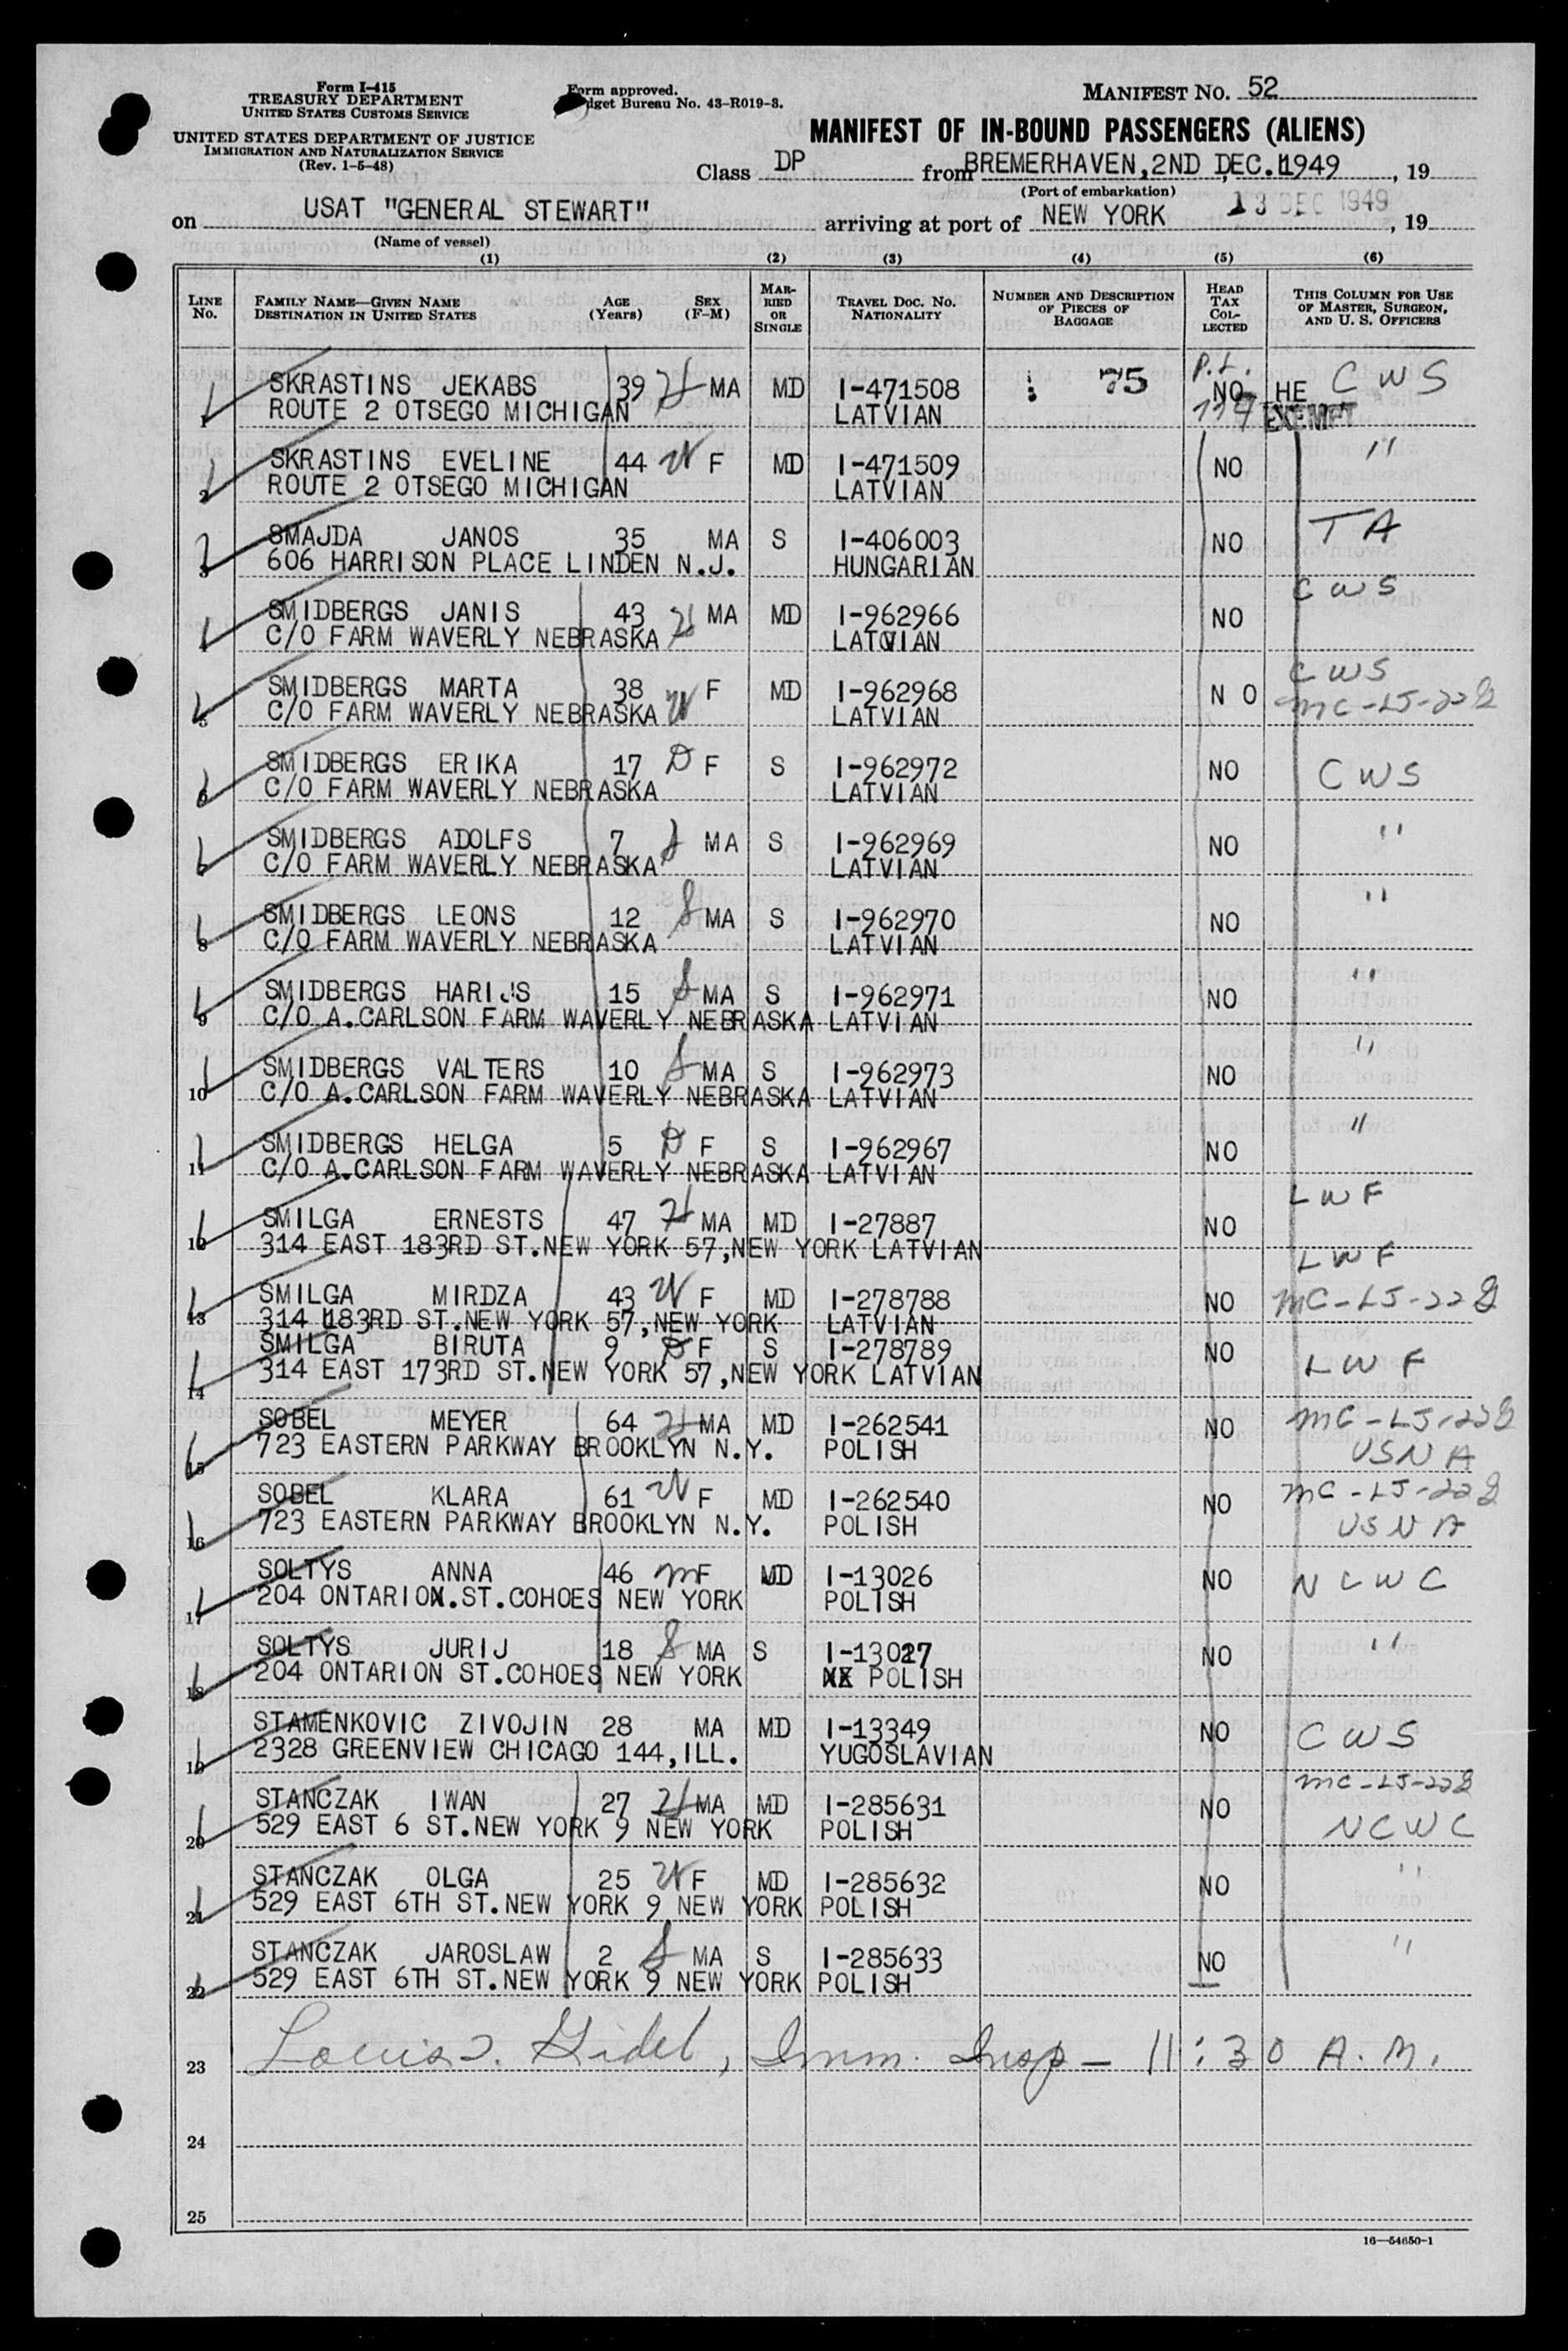 Form I-415
TREASURY DEPARTMENT
UNITED STATES CUSTOMS SERVICE
UNITED STATES DEPARTMENT OF JUSTICE
IMMIGRATION AND NATURALIZATION SERVICE
(Rev. 1-5-48)
Form approved.
dget Bureau No. 43-R019-3.
MANIFEST NO. 52
MANIFEST OF IN-BOUND PASSENGERS (ALIENS)
Class DP from BREMERHAVEN, 2ND DEC. 1949, 19
(Port of embarkation)
on USAT "GENERAL STEWART" arriving at port of NEW YORK 13 DEC 1949, 19
(Name of vessel)
(1) (2) (3) (4) (5) (6)
LINE No. FAMILY NAME—GIVEN NAME DESTINATION IN UNITED STATES AGE (Years) SEX (F-M) MARRIED OR SINGLE TRAVEL DOC. NO. NATIONALITY NUMBER AND DESCRIPTION OF PIECES OF BAGGAGE HEAD TAX COLLECTED THIS COLUMN FOR USE OF MASTER, SURGEON, AND U. S. OFFICERS
SKRASTINS JEKABS 39 H MA MD I-471508 75 P.L. NO HE CWS
ROUTE 2 OTSEGO MICHIGAN LATVIAN 114 EXEMPT
2 SKRASTINS EVELINE 44 W F MD I-471509 NO "
ROUTE 2 OTSEGO MICHIGAN LATVIAN
3 SMAJDA JANOS 35 MA S I-406003 NO TA
606 HARRISON PLACE LINDEN N.J. HUNGARIAN
4 SMIDBERGS JANIS 43 H MA MD I-962966 NO CWS
C/O FARM WAVERLY NEBRASKA LATVIAN
5 SMIDBERGS MARTA 38 W F MD I-962968 N O CWS
C/O FARM WAVERLY NEBRASKA LATVIAN MC-LJ-22g
6 SMIDBERGS ERIKA 17 D F S I-962972 NO CWS
C/O FARM WAVERLY NEBRASKA LATVIAN
SMIDBERGS ADOLFS 7 S MA S I-962969 NO "
C/O FARM WAVERLY NEBRASKA LATVIAN
8 SMIDBERGS LEONS 12 S MA S I-962970 NO "
C/O FARM WAVERLY NEBRASKA LATVIAN
9 SMIDBERGS HARIJS 15 S MA S I-962971 NO "
C/O A.CARLSON FARM WAVERLY NEBRASKA LATVIAN
10 SMIDBERGS VALTERS 10 S MA S I-962973 NO "
C/O A.CARLSON FARM WAVERLY NEBRASKA LATVIAN
11 SMIDBERGS HELGA 5 D F S I-962967 NO "
C/O A.CARLSON FARM WAVERLY NEBRASKA LATVIAN
12 SMILGA ERNESTS 47 H MA MD I-27887 NO LWF
314 EAST 183RD ST.NEW YORK 57,NEW YORK LATVIAN
13 SMILGA MIRDZA 43 W F MD I-278788 NO LWF MC-LJ-22g
314 183RD ST.NEW YORK 57,NEW YORK LATVIAN
14 SMILGA BIRUTA 9 D F S I-278789 NO LWF
314 EAST 173RD ST.NEW YORK 57,NEW YORK LATVIAN
15 SOBEL MEYER 64 H MA MD I-262541 NO MC-LJ-22g
723 EASTERN PARKWAY BROOKLYN N.Y. POLISH USNA
16 SOBEL KLARA 61 W F MD I-262540 NO MC-LJ-22g
723 EASTERN PARKWAY BROOKLYN N.Y. POLISH USNA
17 SOLTYS ANNA 46 M F MD I-13026 NO NCWC
204 ONTARION.ST.COHOES NEW YORK POLISH
18 SOLTYS JURIJ 18 S MA S I-13027 NO "
204 ONTARION ST.COHOES NEW YORK POLISH
19 STAMENKOVIC ZIVOJIN 28 MA MD I-13349 NO CWS
2328 GREENVIEW CHICAGO 144,ILL. YUGOSLAVIAN
20 STANCZAK IWAN 27 H MA MD I-285631 NO MC-LJ-22g
529 EAST 6 ST.NEW YORK 9 NEW YORK POLISH NCWC
21 STANCZAK OLGA 25 W F MD I-285632 NO "
529 EAST 6TH ST.NEW YORK 9 NEW YORK POLISH
22 STANCZAK JAROSLAW 2 S MA S I-285633 NO "
529 EAST 6TH ST.NEW YORK 9 NEW YORK POLISH
23 Louis Gidel, Imm. Insp - 11:30 A.M.
24
25
16—54650-1